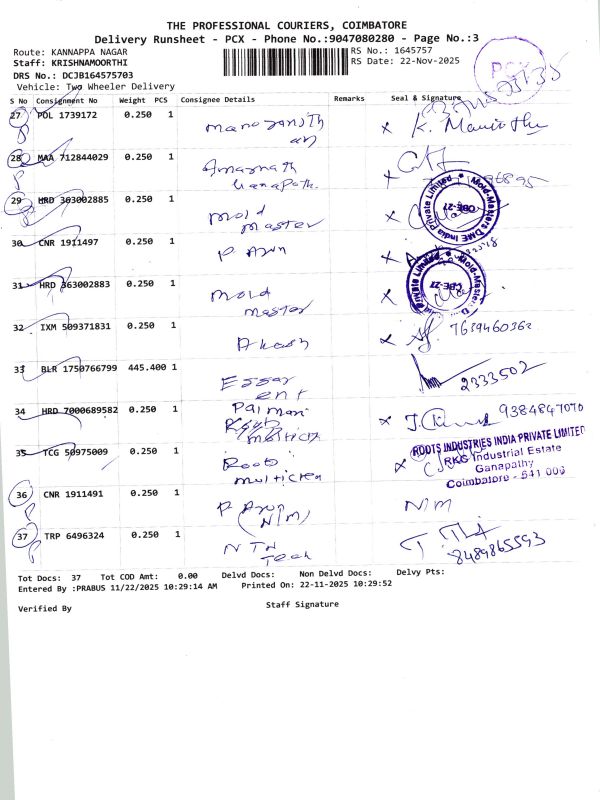 THE PROFESSIONAL COURIERS, COIMBATORE
Delivery Runsheet - PCX - Phone No.:9047080280 - Page No.:3
Route: KANNAPPA NAGAR RS No.: 1645757
Staff: KRISHNAMOORTHI RS Date: 22-Nov-2025
DRS No.: DCJB164575703
Vehicle: Two Wheeler Delivery
PCX
S No Consignment No Weight PCS Consignee Details Remarks Seal & Signature
27 POL 1739172 0.250 1
28 MAA 712844029 0.250 1 Amarnath
29 HRD 363002885 0.250 1 mold
master
30 CNR 1911497 0.250 1 P Arun
31 HRD 363002883 0.250 1 mold
master
Mold-Masters DME India Private Limited
CBE-27
32 IXM 509371831 0.250 1 Akash 7639460362
33 BLR 1750766799 445.400 1 Essar
ent 2333502
34 HRD 7000689582 0.250 1 9384847070
35 TCG 50975009 0.250 1 Roots
multiclean
ROOTS INDUSTRIES INDIA PRIVATE LIMITED
RKG Industrial Estate
Ganapathy
Coimbatore - 641 006
36 CNR 1911491 0.250 1 P Arun N/M
(N/M)
37 TRP 6496324 0.250 1 NTN
Tech 8489865593
Tot Docs: 37 Tot COD Amt: 0.00 Delvd Docs: Non Delvd Docs: Delvy Pts:
Entered By :PRABUS 11/22/2025 10:29:14 AM Printed On: 22-11-2025 10:29:52
Verified By Staff Signature